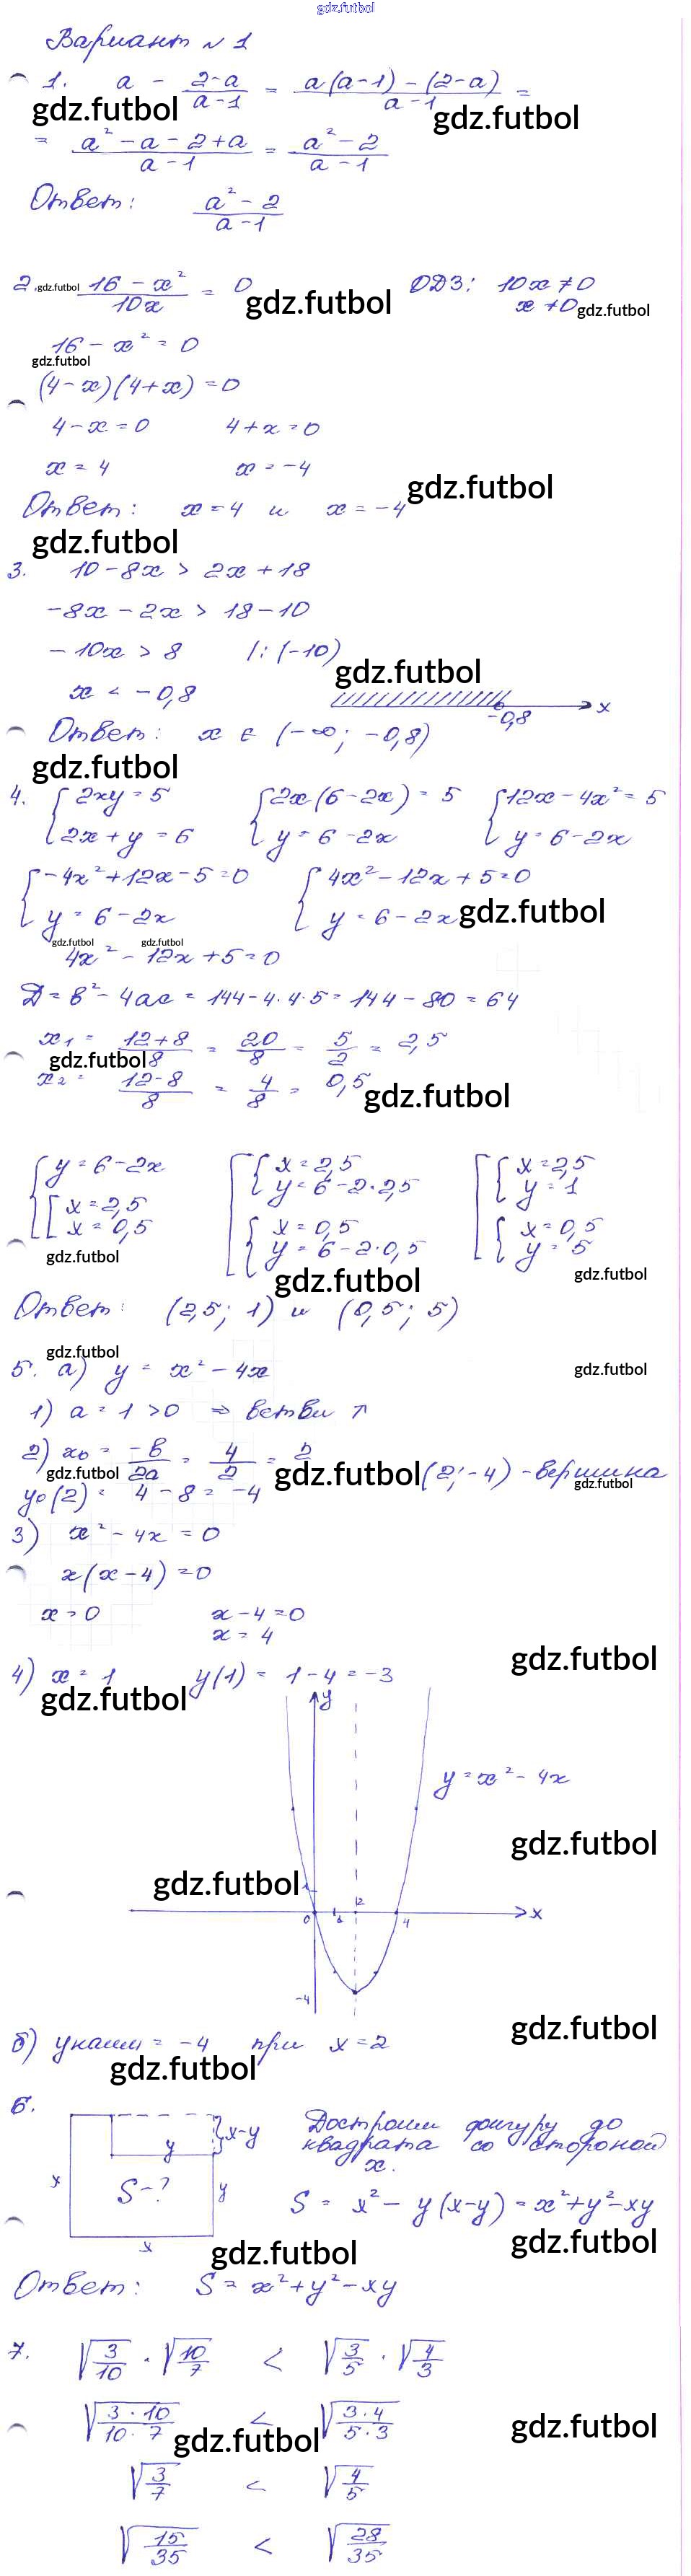 gdz.futbol
Вариант №1
1. a - (2-a)/(a-1) = (a(a-1)-(2-a))/(a-1) =
gdz.futbol gdz.futbol
= (a²-a-2+a)/(a-1) = (a²-2)/(a-1)
Ответ: (a²-2)/(a-1)
2. gdz.futbol (16-x²)/(10x) = 0 gdz.futbol ОДЗ: 10x≠0
x≠0 gdz.futbol
16-x²=0
gdz.futbol
(4-x)(4+x)=0
4-x=0 4+x=0
x=4 x=-4
gdz.futbol
Ответ: x=4 и x=-4
gdz.futbol
3. 10-8x > 2x+18
-8x-2x > 18-10
-10x > 8 |:(-10)
gdz.futbol
x < -0,8
-0,8 x
Ответ: x ∈ (-∞; -0,8)
gdz.futbol
4. { 2xy=5 { 2x(6-2x)=5 { 12x-4x²=5
{ 2x+y=6 { y=6-2x { y=6-2x
{ -4x²+12x-5=0 { 4x²-12x+5=0
{ y=6-2x { y=6-2x gdz.futbol
gdz.futbol gdz.futbol
4x²-12x+5=0
Д=в²-4ac=144-4·4·5=144-80=64
x₁ = (12+8)/8 = 20/8 = 5/2 = 2,5
gdz.futbol
x₂ = (12-8)/8 = 4/8 = 0,5
gdz.futbol
{ y=6-2x [ { x=2,5 [ { x=2,5
{ y=6-2·2,5 { y=1
[ x=2,5
x=0,5 { x=0,5 { x=0,5
{ y=6-2·0,5 { y=5
gdz.futbol gdz.futbol gdz.futbol
Ответ: (2,5; 1) и (0,5; 5)
gdz.futbol gdz.futbol
5. а) y = x²-4x
1) a=1>0 ⇒ ветви ↑
2) x₀ = -в/2a = 4/2 = 2
gdz.futbol gdz.futbol (2;-4) - вершина
gdz.futbol
y₀(2) = 4-8=-4
3) x²-4x=0
x(x-4)=0
x=0 x-4=0
x=4
gdz.futbol
4) x=1 y(1) = 1-4=-3
gdz.futbol
y
y=x²-4x
gdz.futbol
gdz.futbol
1 2
0 1 4 x
-4
gdz.futbol
б) yнаим=-4 при x=2
gdz.futbol
6. Достроим фигуру до
x-y квадрата со стороной
y x.
x S-? y
S = x²-y(x-y)=x²+y²-xy
x gdz.futbol gdz.futbol
Ответ: S=x²+y²-xy
7. √(3/10) · √(10/7) < √(3/5) · √(4/3)
√((3·10)/(10·7)) < √((3·4)/(5·3))
gdz.futbol gdz.futbol
√(3/7) < √(4/5)
√(15/35) < √(28/35)